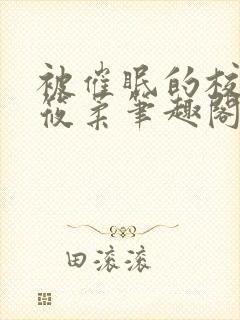 被催眠的校
筱柔笔趣阁
田滚滚